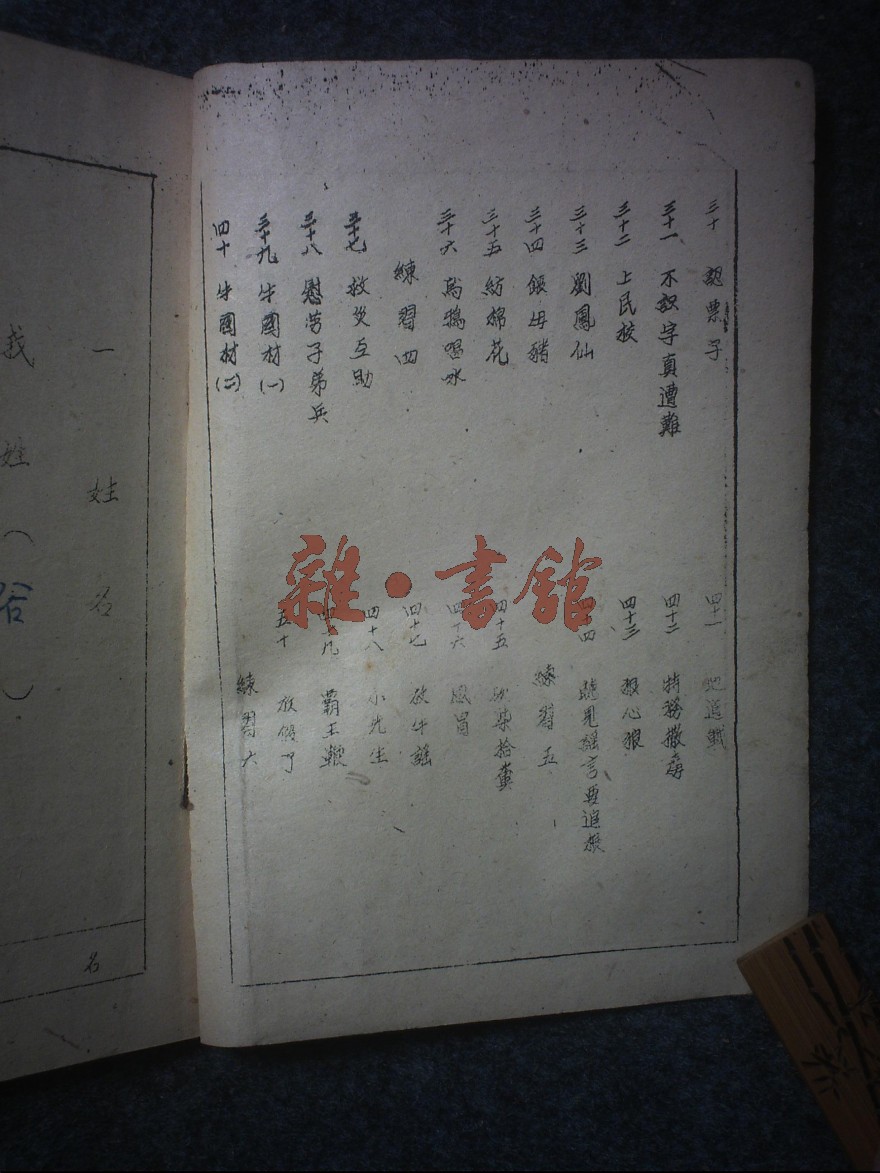 三十 認票子
三十一 不識字真遭難
三十二 上民校
三十三 劉鳳仙
三十四 餵母豬
三十五 紡棉花
三十六 烏鴉喝水
練習四
三十七 救災互助
三十八 慰勞子弟兵
三十九 牛國材(一)
四十 牛國材(二)
四十一 地道戰
四十二 特務撒毒
四十三 狠心狼
四十四 聽見謠言要追根
練習五
四十五 拾糞
四十六 感冒
四十七 放牛謠
四十八 小先生
四十九 霸王鞭
五十 放假了
練習六
雜·書館
一 姓名
我姓(谷)
名